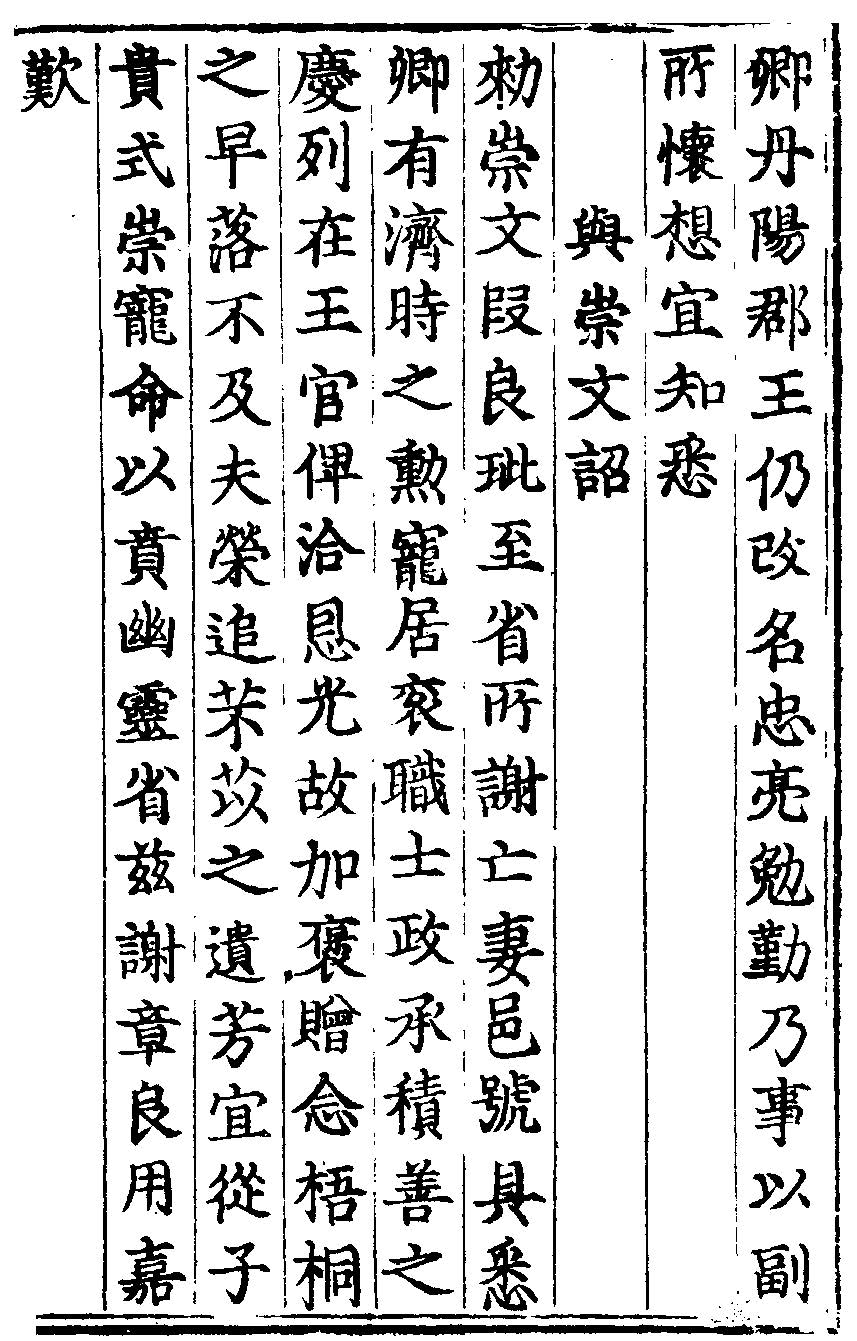 卿丹陽郡王仍改名忠亮勉勤乃事以副
所懷想宜知悉
與崇文詔
勑崇文段良玭至省所謝亡妻邑號具悉
卿有濟時之勲寵居衮職士政承積善之
慶列在王官俾洽恩光故加褒贈念梧桐
之早落不及夫榮追芣苡之遺芳宜從子
貴式崇寵命以賁幽靈省兹謝章良用嘉
歎